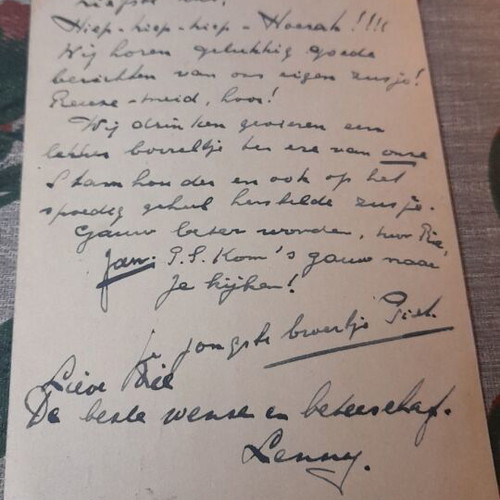 Hiep-hiep-hiep-Hoerah!!!!
Wij horen gelukkig goede
berichten van ons eigen zusje!
Reuze-meid, hoor!
Wij drinken gevieren een
lekker borreltje ter ere van onze
Stamhouder en ook op het
spoedig geheel herstelde zusje.
Gauw beter worden, hoor Rie,
Jan: P.S. Kom's gauw naar
je kijken!
Je jongste broertje Piet.
Lieve Rie
De beste wensen en beterschap.
Lenny.